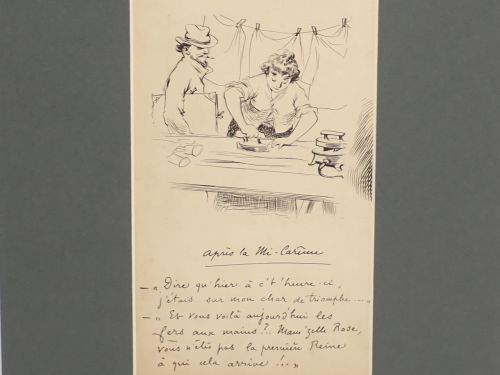 Après la Mi-Carême
— „ Dire qu'hier à c't'heure-ci,
j'étais sur mon char de triomphe..."
— „ Et vous voilà aujourd'hui les
fers aux mains ?.. Mam'zelle Rose,
vous n'êtes pas la première Reine
à qui cela arrive !.. "